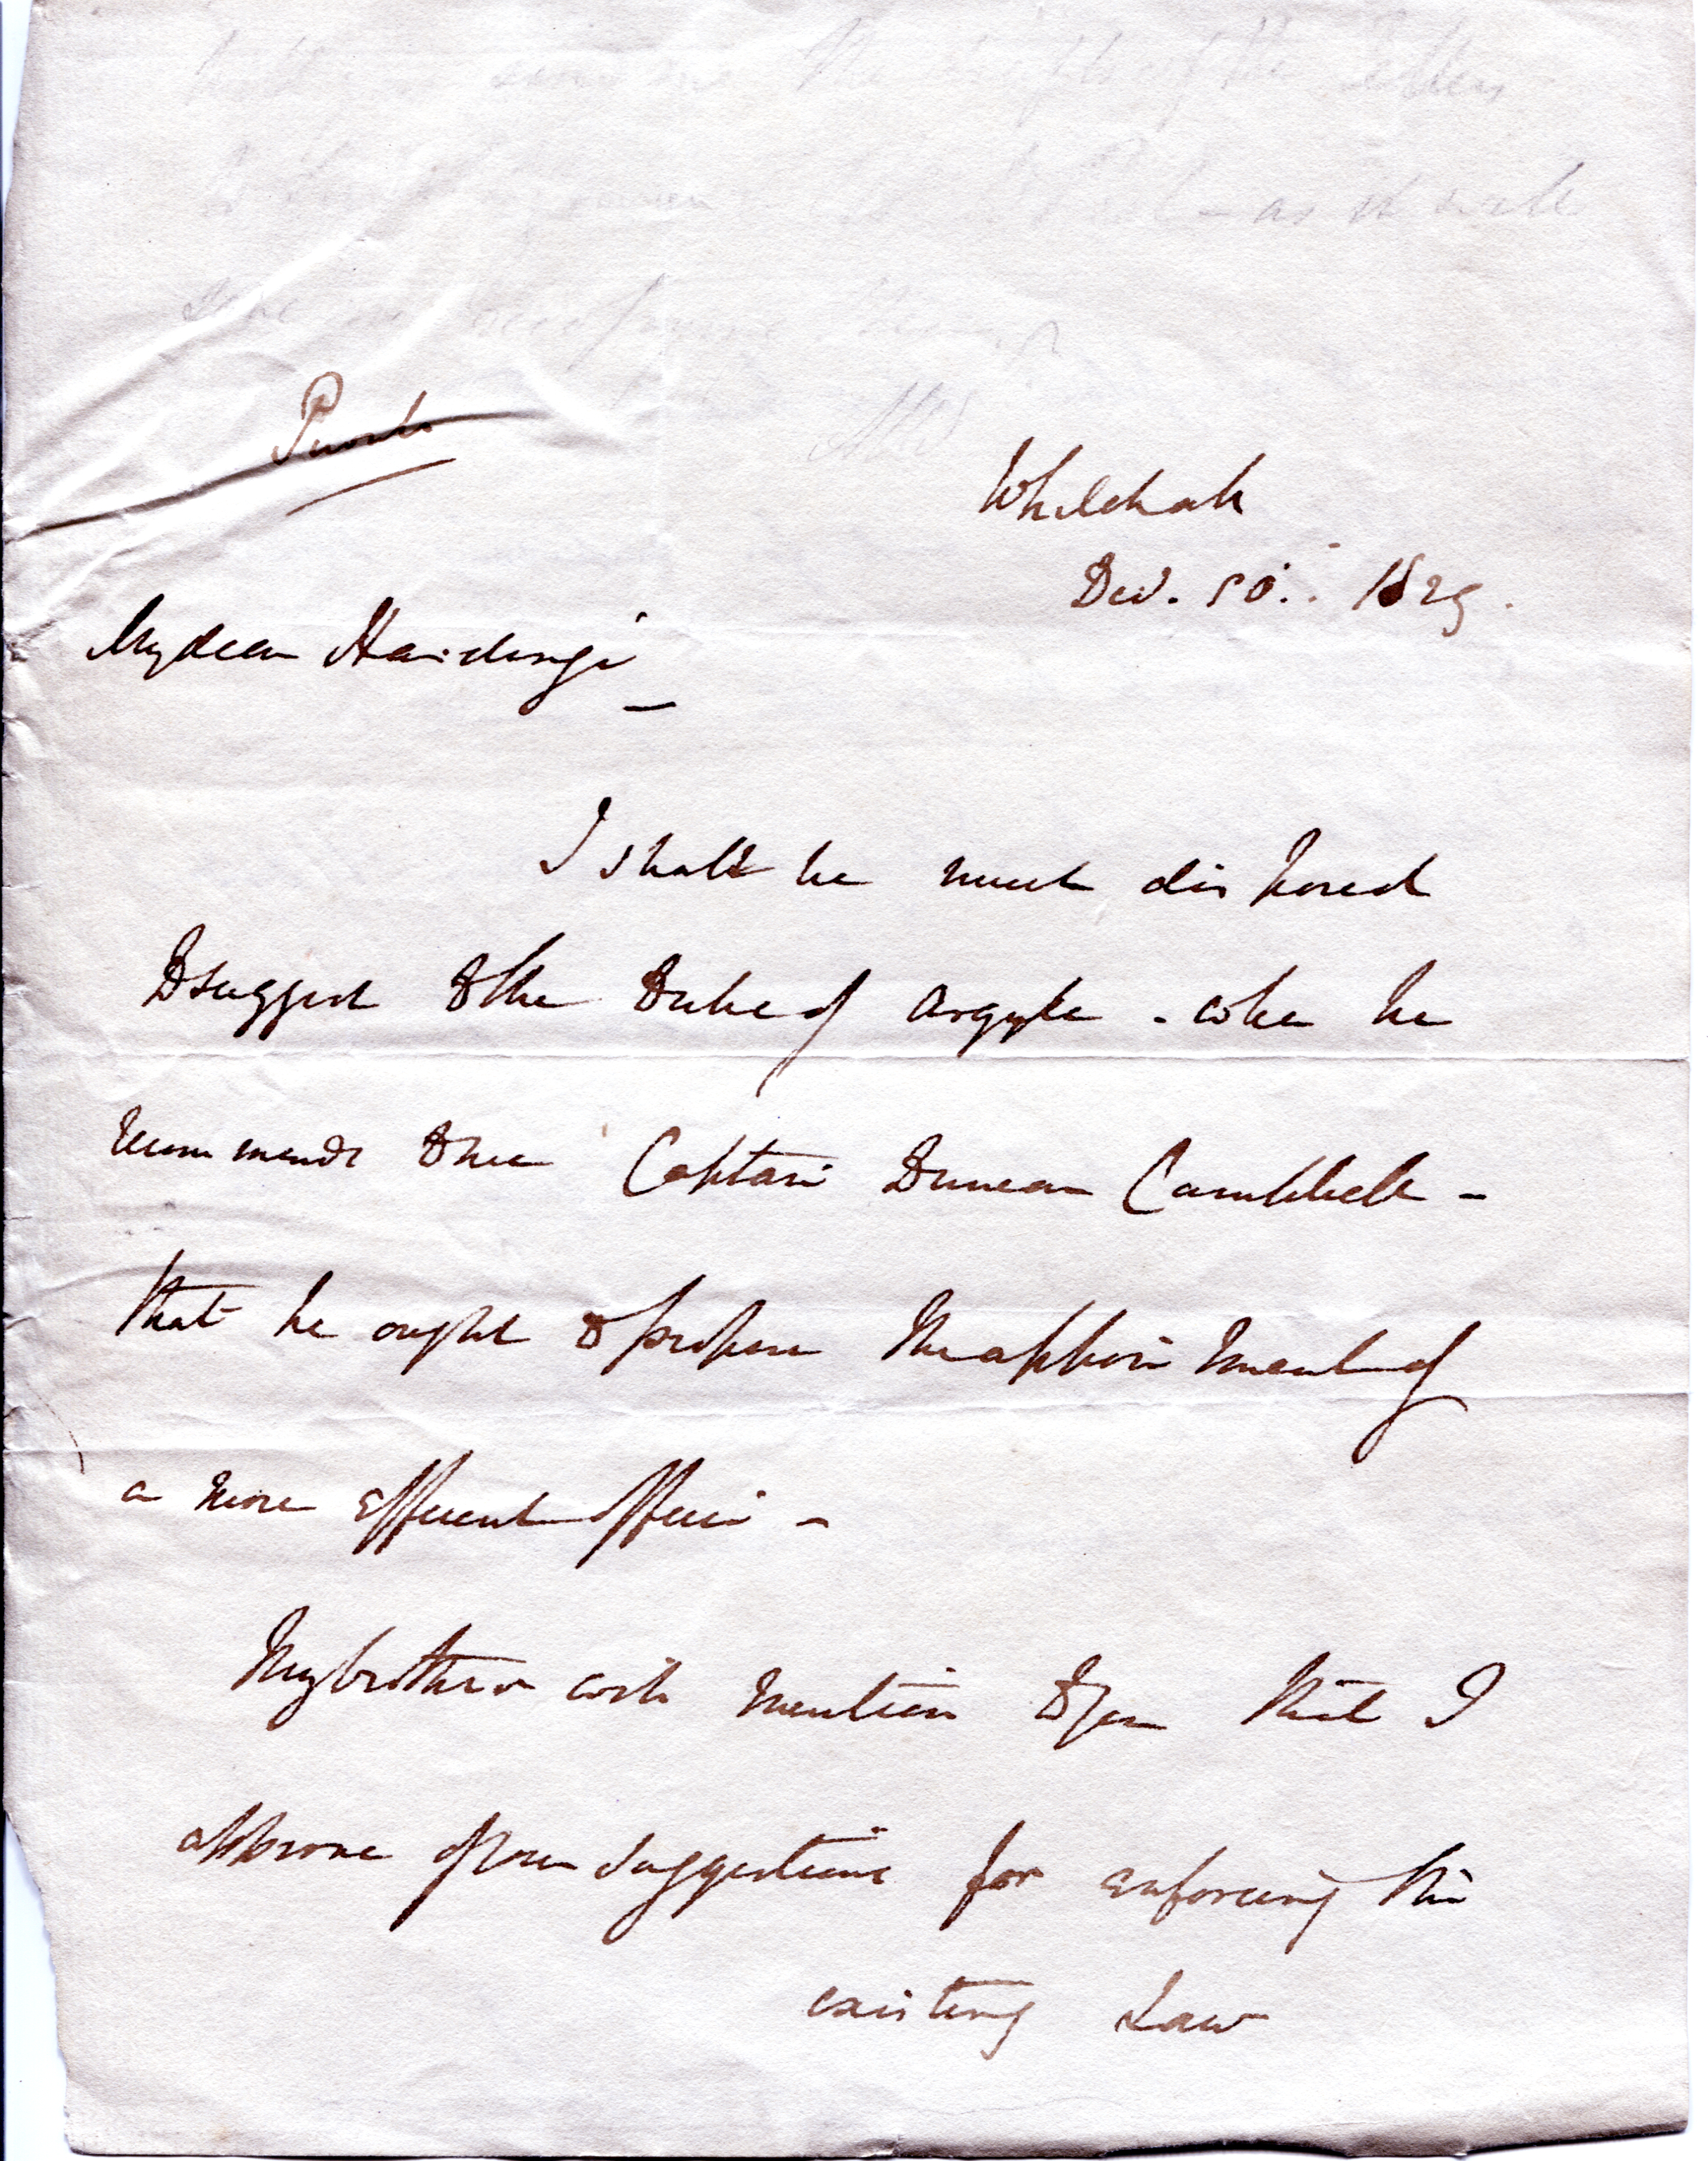 Private
Whitehall
Dec. 10. 1829.
My dear Hardinge
I shall be much disposed
to suggest to the Duke of Argyle - when he
recommends to me Captain Duncan Campbell -
that he ought to propose the appointment of
a more efficient officer -
My brother will mention to you that I
approve of your suggestions for enforcing the
existing Law